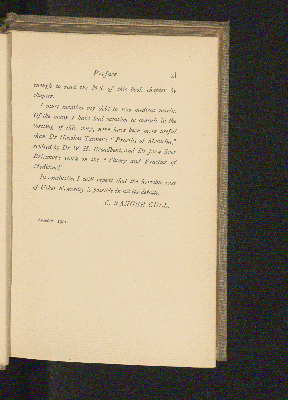 Preface xi
enough to read the field of this book chapter by
chapter.
I must mention my debt to two medical works.
Of the many I have had occasion to consult in the
writing of this story, none have been more useful
than Dr Hawkes Tanner's "Practice of Medicine,"
revised by Dr W. H. Broadbent, and Dr
work on the "Theory and Practice of
Medicine."
In conclusion I will repeat that the horrible case
of is possible in all its details.
C. RANGER GULL.
London, 190